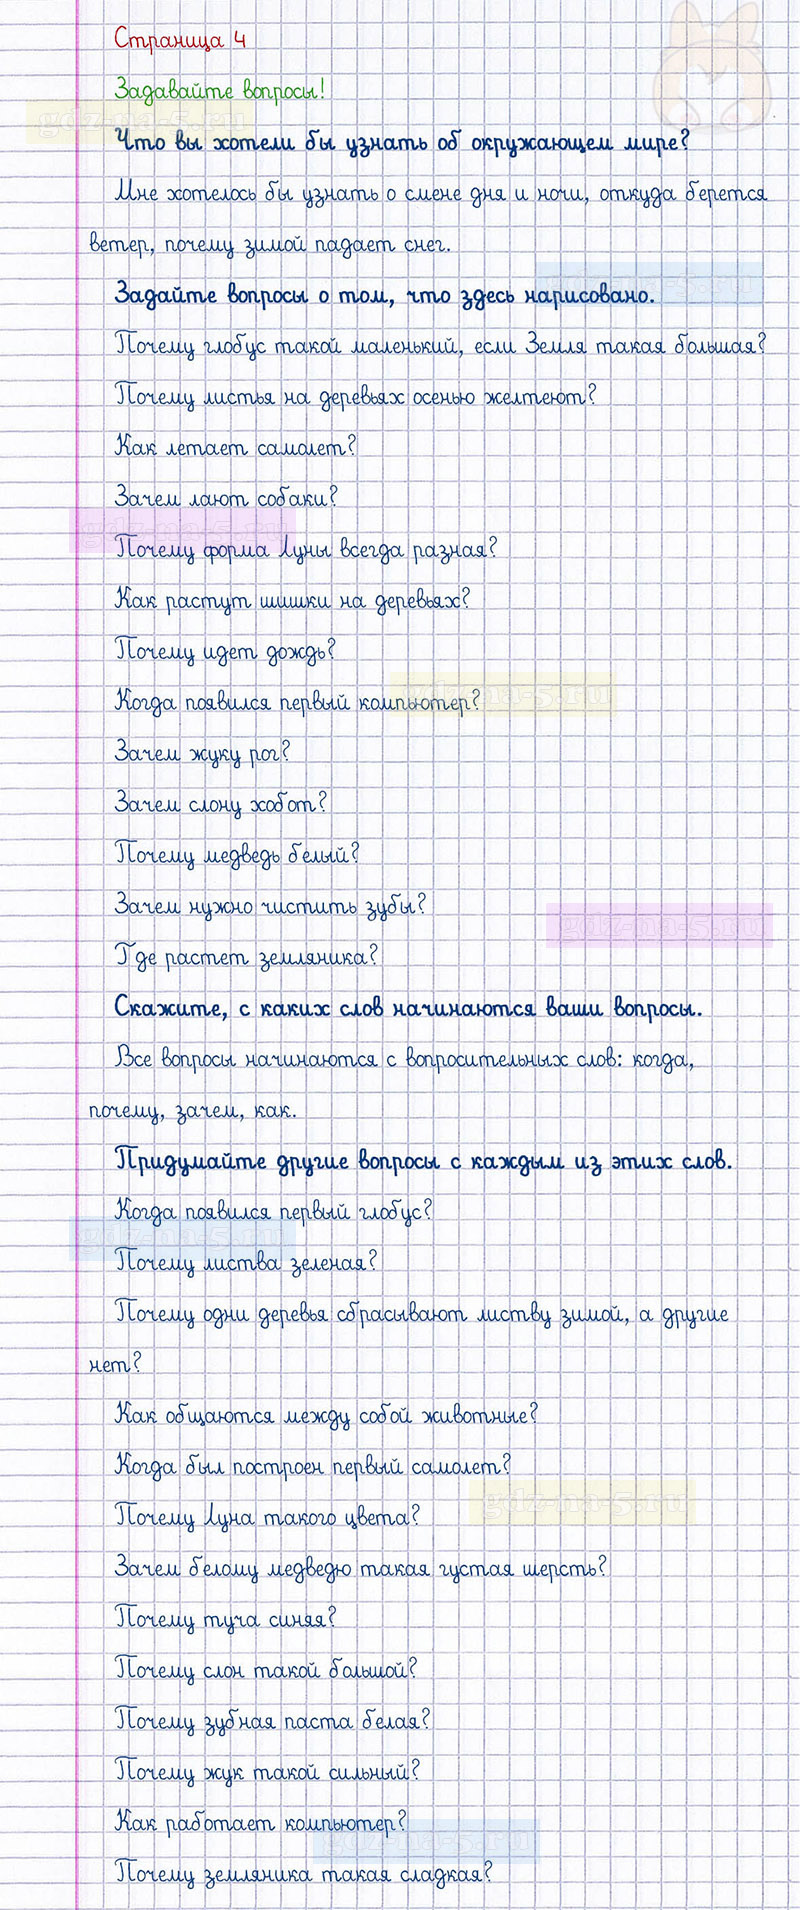 Страница 4
Задавайте вопросы!
gdz-na-5.ru
Что вы хотели бы узнать об окружающем мире?
Мне хотелось бы узнать о смене дня и ночи, откуда берется
ветер, почему зимой падает снег.
gdz-na-5.ru
Задайте вопросы о том, что здесь нарисовано.
Почему глобус такой маленький, если Земля такая большая?
Почему листья на деревьях осенью желтеют?
Как летает самолет?
Зачем лают собаки?
gdz-na-5.ru
Почему форма Луны всегда разная?
Как растут шишки на деревьях?
Почему идет дождь?
gdz-na-5.ru
Когда появился первый компьютер?
Зачем жуку рог?
Зачем слону хобот?
Почему медведь белый?
Зачем нужно чистить зубы?
gdz-na-5.ru
Где растет земляника?
Скажите, с каких слов начинаются ваши вопросы.
Все вопросы начинаются с вопросительных слов: когда,
почему, зачем, как.
Придумайте другие вопросы с каждым из этих слов.
Когда появился первый глобус?
gdz-na-5.ru
Почему листва зеленая?
Почему одни деревья сбрасывают листву зимой, а другие
нет?
Как общаются между собой животные?
Когда был построен первый самолет?
gdz-na-5.ru
Почему Луна такого цвета?
Зачем белому медведю такая густая шерсть?
Почему туча синяя?
Почему слон такой большой?
Почему зубная паста белая?
Почему жук такой сильный?
Как работает компьютер?
gdz-na-5.ru
Почему земляника такая сладкая?